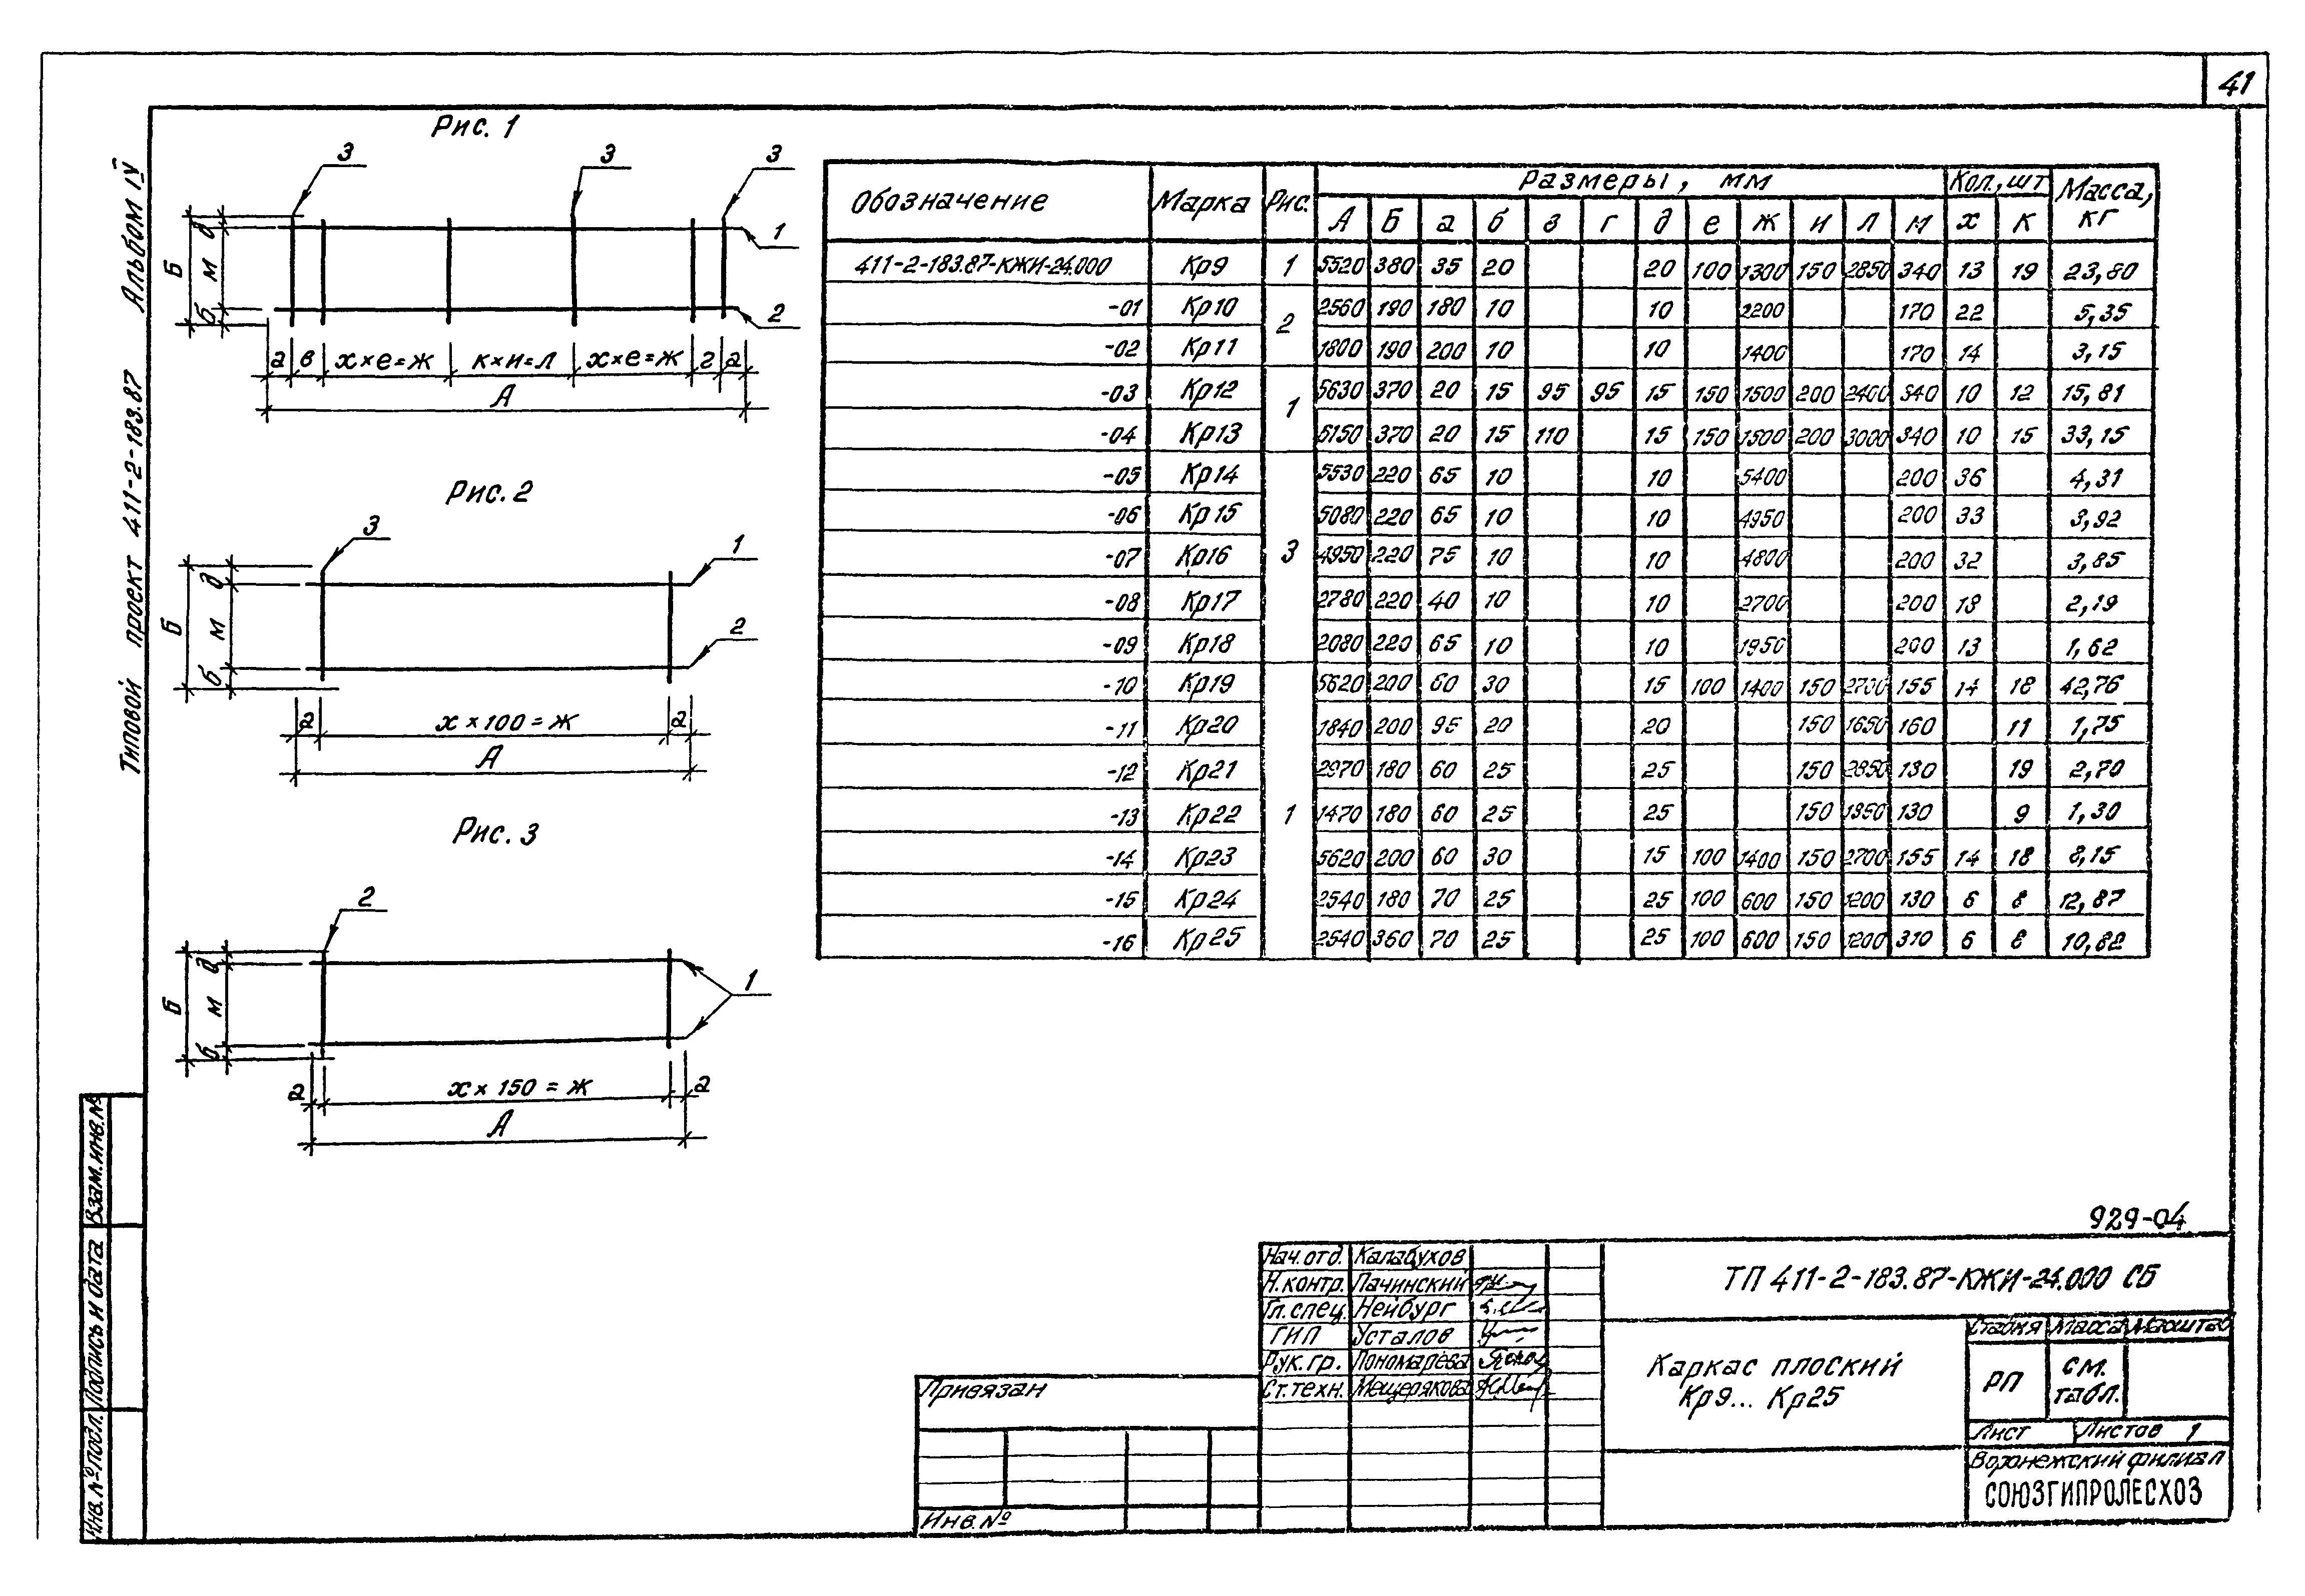 41
Типовой проект 411-2-183.87 Альбом IV
Рис. 1
3 3 3
1
2
Б д м б
а в х×е=ж к×и=л х×е=ж г а
А
Рис. 2
3
1
2
Б д м б
а х×100=ж а
А
Рис. 3
2
1
Б д м б
а х×150=ж а
А
Обозначение Марка Рис. Размеры, мм Кол., шт Масса, кг
А Б а б в г д е ж и л м х к
411-2-183.87-КЖИ-24.000 Кр9 1 5520 380 35 20 20 100 1300 150 2850 340 13 19 23,80
-01 Кр10 2 2560 190 180 10 10 2200 170 22 5,35
-02 Кр11 1800 190 200 10 10 1400 170 14 3,15
-03 Кр12 1 5630 370 20 15 95 95 15 150 1500 200 2400 340 10 12 15,81
-04 Кр13 6150 370 20 15 110 15 150 1500 200 3000 340 10 15 33,15
-05 Кр14 3 5530 220 65 10 10 5400 200 36 4,31
-06 Кр15 5080 220 65 10 10 4950 200 33 3,92
-07 Кр16 4950 220 75 10 10 4800 200 32 3,85
-08 Кр17 2780 220 40 10 10 2700 200 18 2,19
-09 Кр18 2080 220 65 10 10 1950 200 13 1,62
-10 Кр19 1 5620 200 60 30 15 100 1400 150 2700 155 14 18 42,76
-11 Кр20 1840 200 95 20 20 150 1650 160 11 1,75
-12 Кр21 2970 180 60 25 25 150 2850 130 19 2,70
-13 Кр22 1470 180 60 25 25 150 1350 130 9 1,30
-14 Кр23 5620 200 60 30 15 100 1400 150 2700 155 14 18 8,15
-15 Кр24 2540 180 70 25 25 100 600 150 1200 130 6 8 12,87
-16 Кр25 2540 360 70 25 25 100 600 150 1200 310 6 8 10,82
929-04
Нач.отд. Калабухов
Н.контр. Пачинский
Гл.спец. Нейбург
ГИП Усталов
Рук.гр. Пономарева
Ст.техн. Мещерякова
ТП 411-2-183.87-КЖИ-24.000 СБ
Каркас плоский
Кр9... Кр25
Стадия Масса Масштаб
РП см. табл.
Лист Листов 1
Воронежский филиал
СОЮЗГИПРОЛЕСХОЗ
Привязан
Инв.№
Взам.инв.№
Подпись и дата
Инв.№ подл.